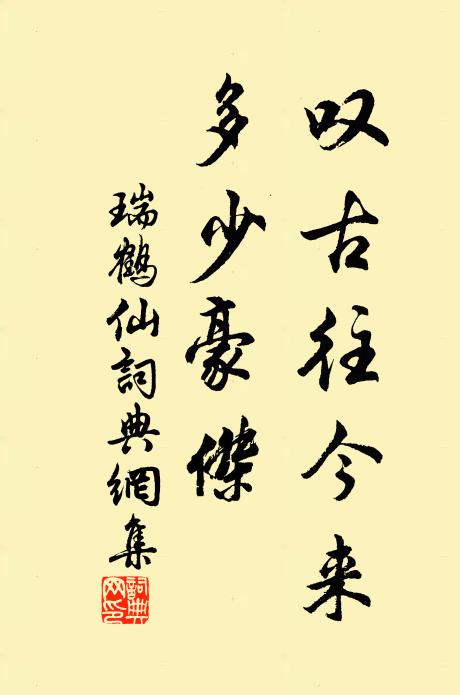 叹古往今来
多少豪傑
瑞鶴仙詞典網集
詞典網印